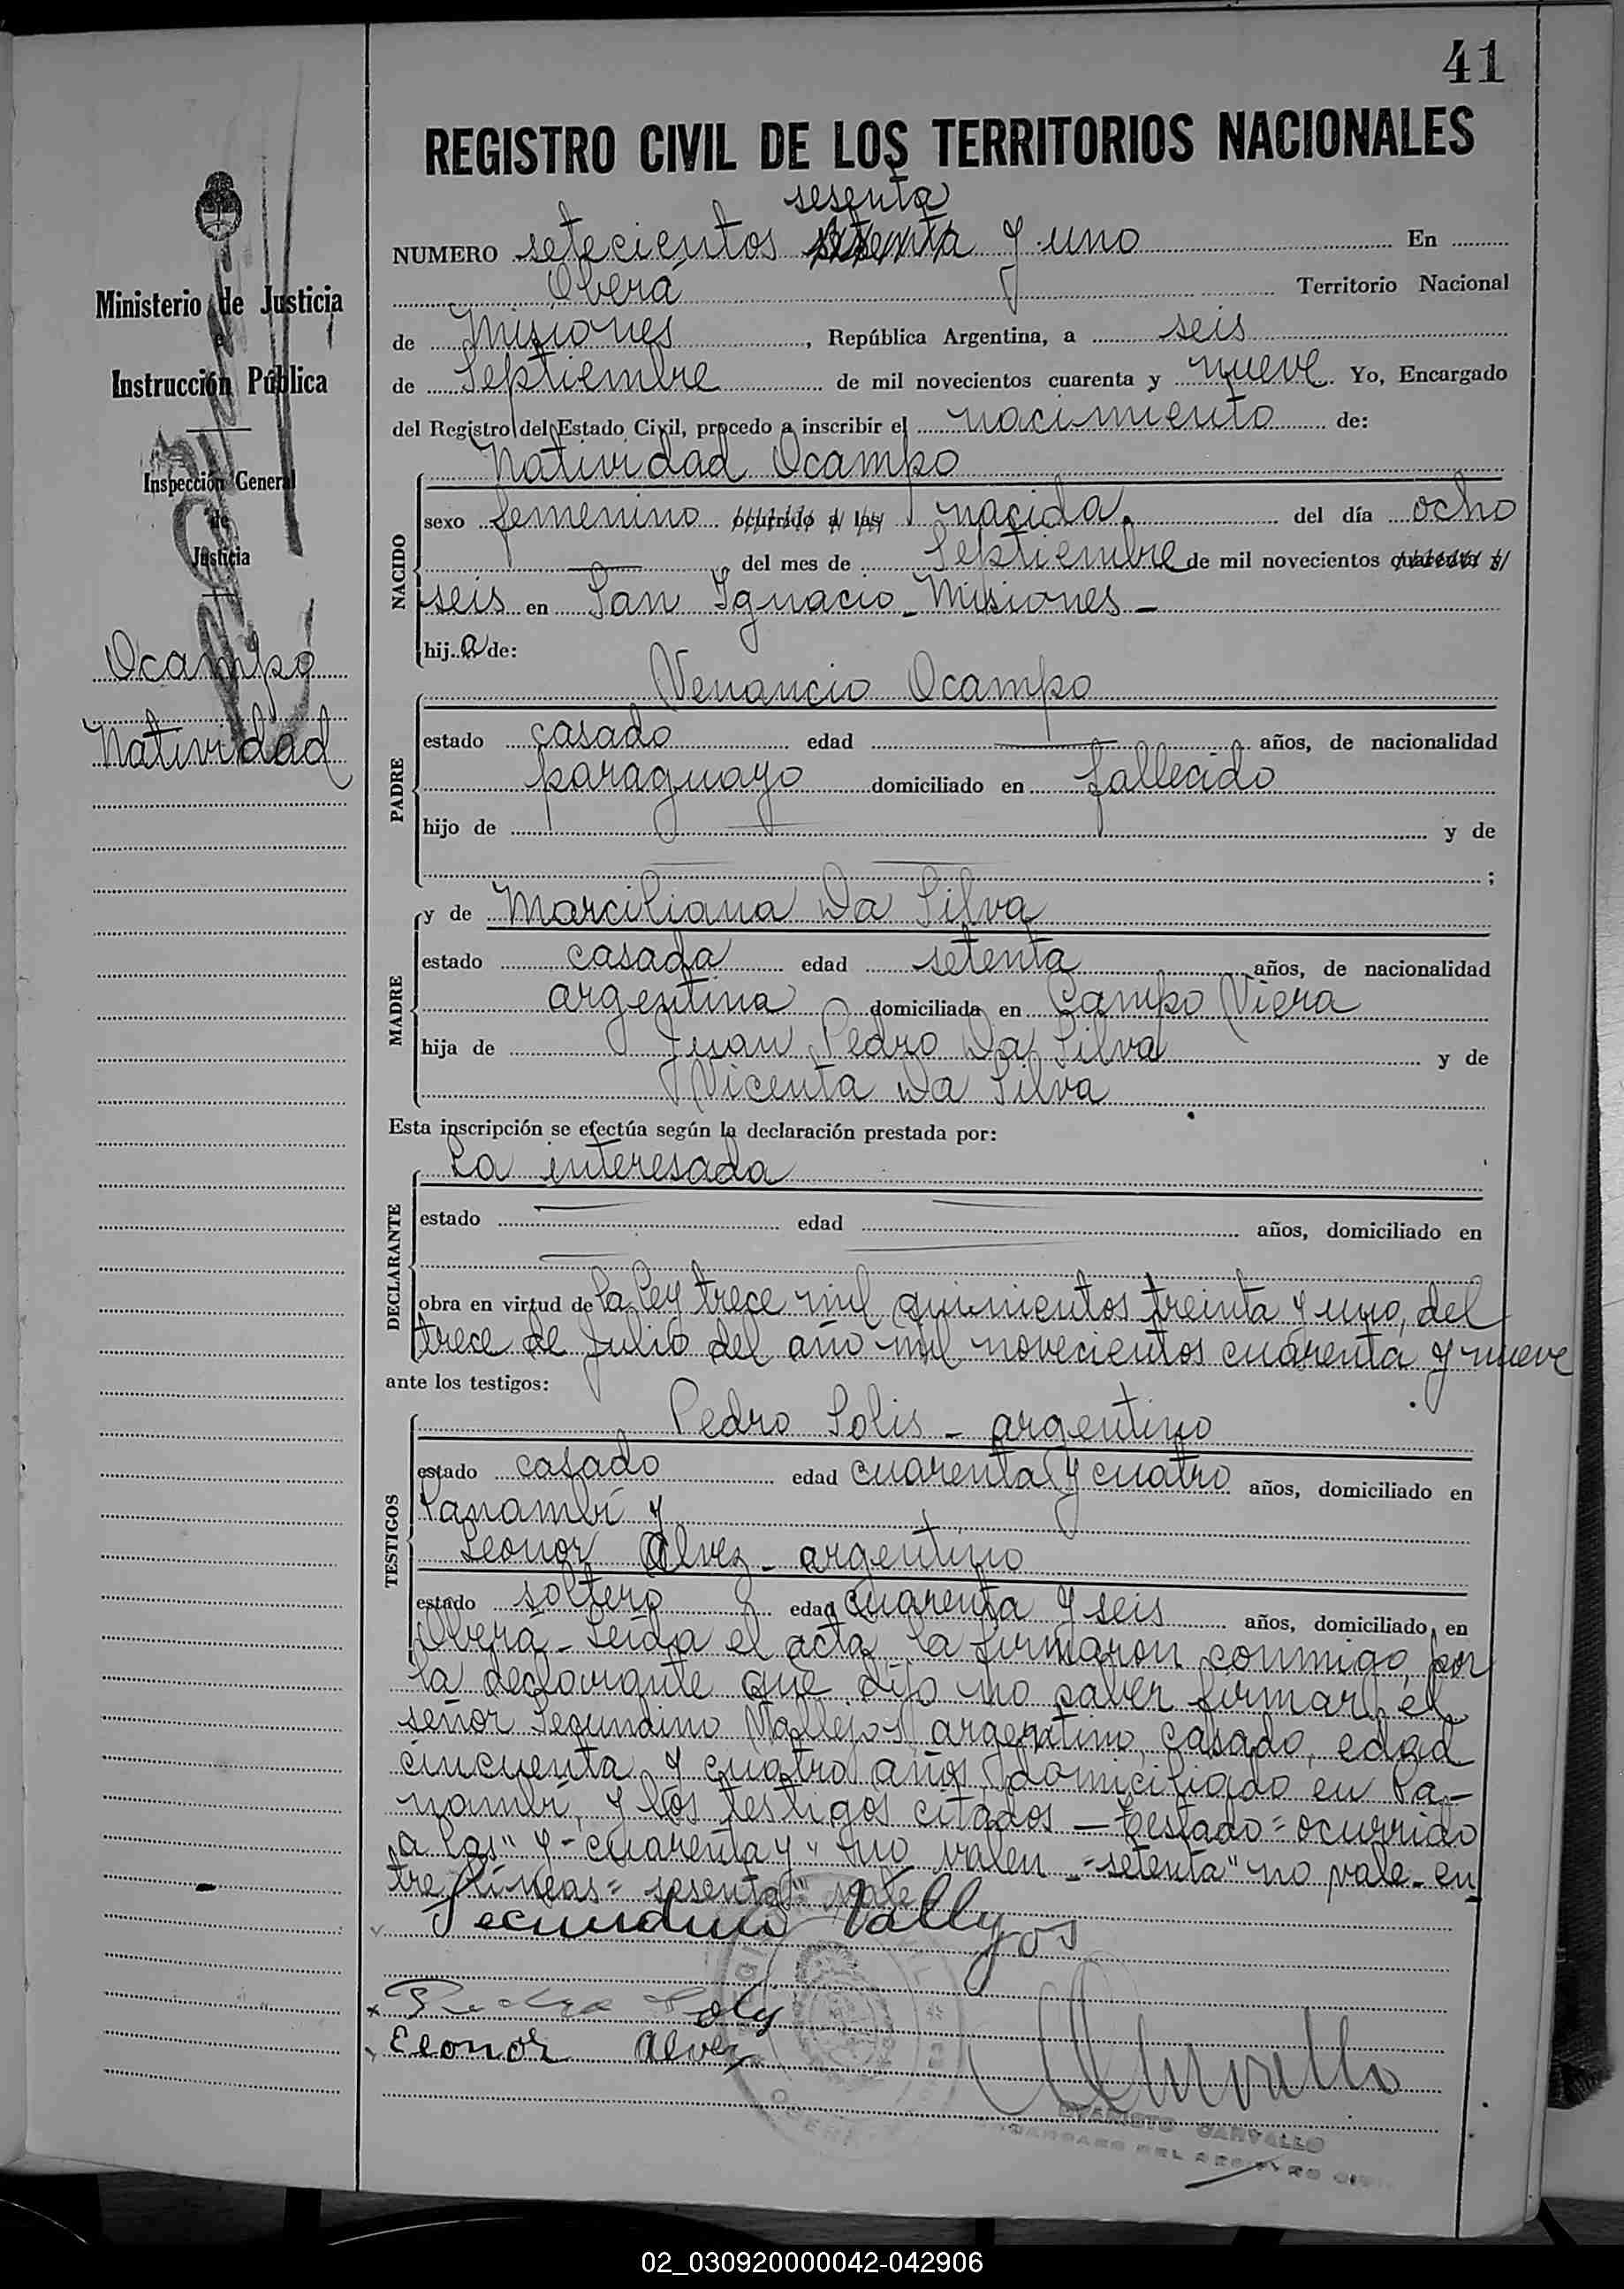 41
REGISTRO CIVIL DE LOS TERRITORIOS NACIONALES
sesenta
NUMERO setecientos setenta y uno En
Oberá Territorio Nacional
de Misiones, República Argentina, a seis
de Septiembre de mil novecientos cuarenta y nueve. Yo, Encargado
del Registro del Estado Civil, procedo a inscribir el nacimiento de:
Natividad Ocampo
NACIDO
sexo femenino ocurrido a las nacida del día ocho
del mes de Septiembre de mil novecientos cuarenta y
seis en San Ignacio - Misiones -
hija de:
Venancio Ocampo
PADRE
estado casado edad años, de nacionalidad
paraguayo domiciliado en fallecido
hijo de y de
;
y de Marciliana Da Silva
MADRE
estado casada edad setenta años, de nacionalidad
argentina domiciliada en Campo Viera
hija de Juan Pedro Da Silva y de
Vicenta Da Silva
Esta inscripción se efectúa según la declaración prestada por:
La interesada
DECLARANTE
estado edad años, domiciliado en
obra en virtud de la ley trece mil quinientos treinta y uno, del
trece de Julio del año mil novecientos cuarenta y nueve
ante los testigos:
Pedro Solis - argentino
TESTIGOS
estado casado edad cuarenta y cuatro años, domiciliado en
Panambí y
Leonor Alvez - argentino
estado soltero edad cuarenta y seis años, domiciliado en
Oberá - Leída el acta, la firmaron conmigo, por
la declarante que dijo no saber firmar, el
señor Secundino Vallejos, argentino, casado, edad
cincuenta y cuatro años, domiciliado en Pa-
nambí, y los testigos citados — testado = ocurrido
a las" y - cuarenta y " no valen - = setenta" no vale - en
tre líneas = sesenta" vale
Secundino Vallejos
x Pedro Solis
Eleonor Alvez
EVARISTO CARVALLO
ENCARGADO DEL REGISTRO CIVIL
Ministerio de Justicia
e
Instrucción Pública
Inspección General
de
Justicia
Ocampo
Natividad
02_030920000042-042906